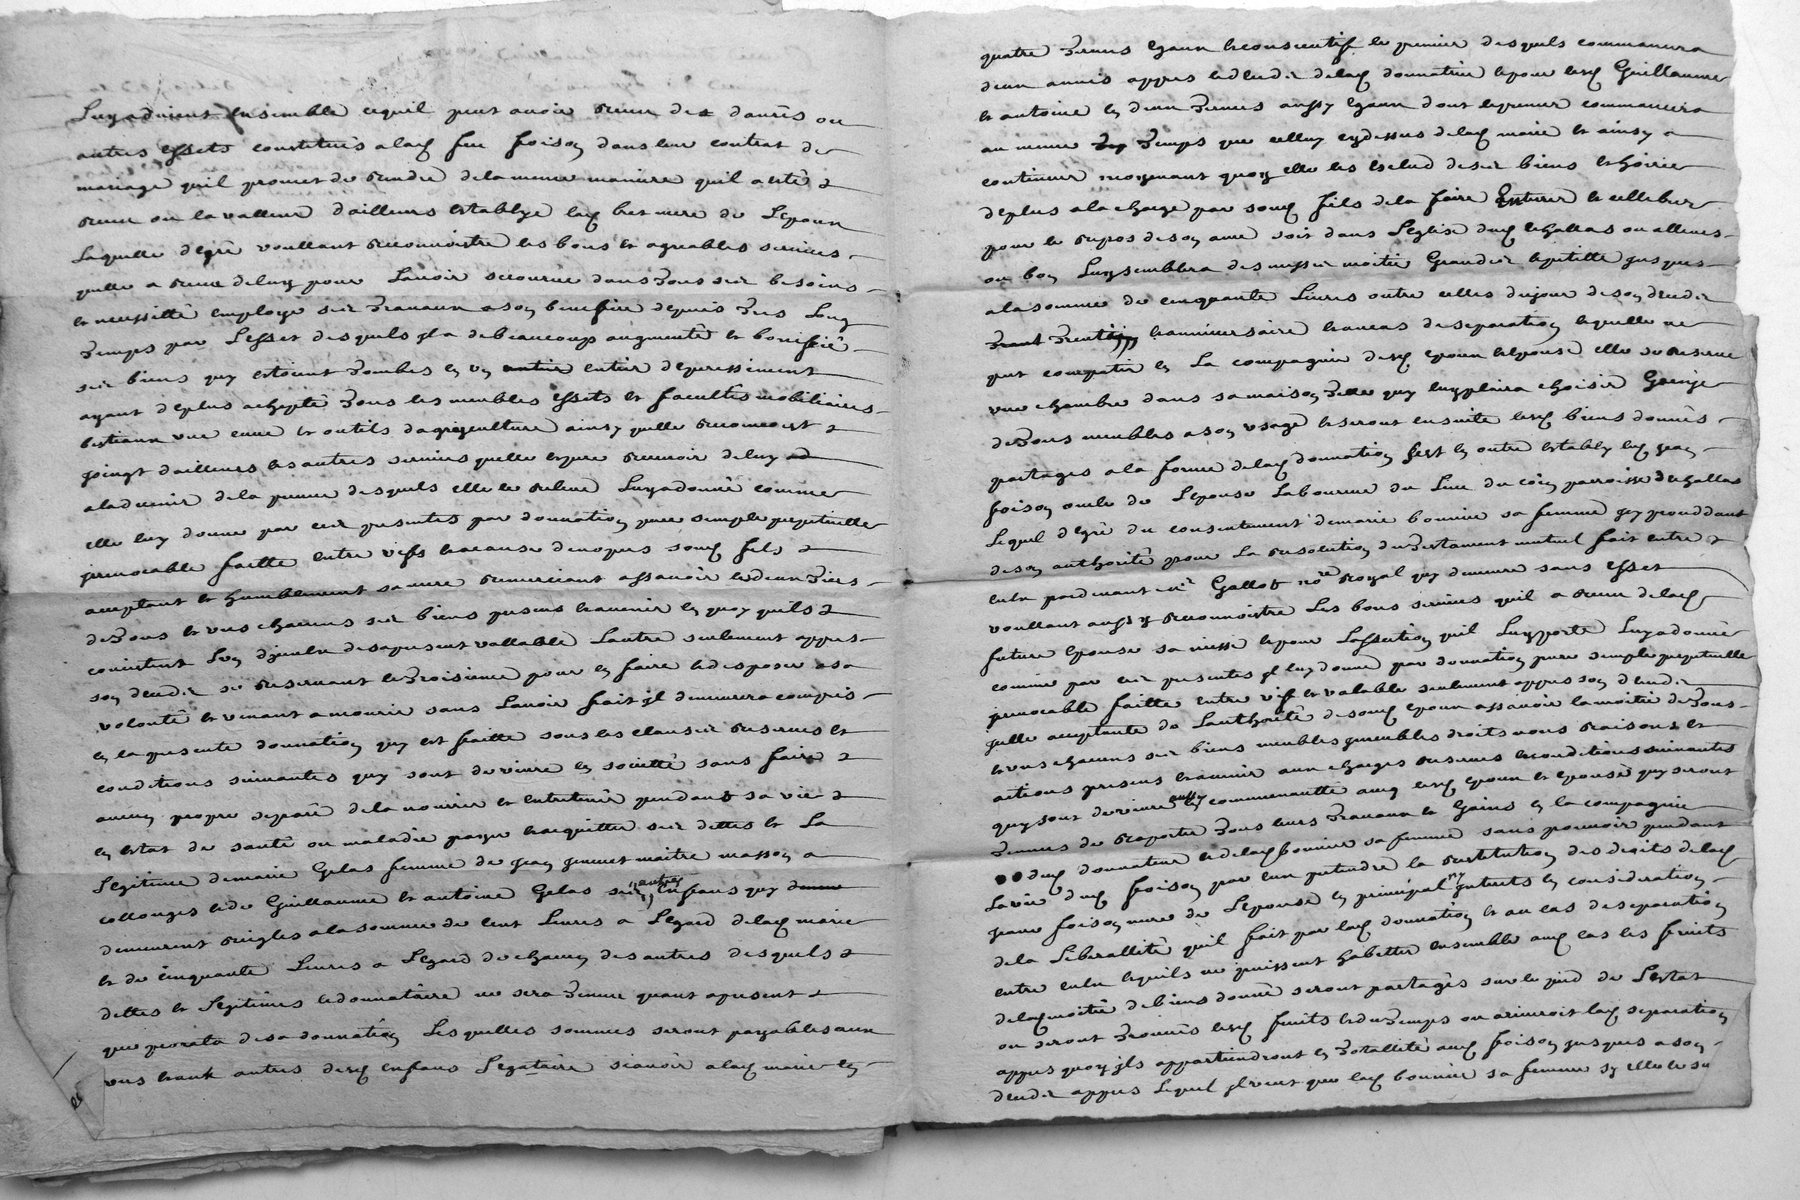 Luy adviens ensemble ce quil peut avoir receu des danrés ou
autres effets constitués a lad feu foison dans leur contrat de
mariage quil promet de rendre de la meme maniere quil a eté
receu ou la valleur d'ailleurs establye lad mere de L'epoux
Laquelle de gré voullant reconnoistre les bons et agreables services
quelle a receu de luy pour Lavoir secourue dans tous ses besoins
et necessitté employé ses travaux a son benefice depuis tres Long
temps par L'effet desquels jl a de beaucoup augmenté et boniffié
ses biens quy estoient tombés en un entier deperissiment
ayant deplus achepté tous les meubles effets et facultés mobiliaires
bestiaux et outils dagregculture ainsy quelle reconnoist
joingt dailleurs les autres services quelle espere recevoir de luy
a ladvenir de la preuve desquels elle le releve Luy a donné comme
elle luy donne par ces presentes par donnation pure simple perpetuelle
jrrevocable faitte entre vifs a cause de nopces aud fils
acceptant et humblement sa mere remerciant assavoir les deux tiers
de tous et uns chacuns ses biens presens et avenir en quoy quils
consistent Lun djceulx des a present vallable Lautre seulement appres
son deceds se reservant le troisieme pour en faire et disposer a sa
volonté et venant a mourir sans L'avoir fait jl demeurera compris
en la presente donnation quy est faitte sous les clauses reserves et
conditions suivantes quy sont de vivre en societté sans faire
aucun propre separé de la nourrir et entretenir pendant sa vie
en estat de santé ou maladie payer et acquitter ses dettes et La
Legitime de marie Gelas femme de jean maitre masson a
collonges et de Guillaume et antoine Gelas ses autres enfans quy
demeurent reigles a la somme de cent Livres a L'egard de lad marie
et de cinquante Livres a L'egard de chacun des autres desquels
dettes et Legitimes le donnataire ne sera tenu quant a present
que prorata de sa donnation Lesquelles sommes seront payables aux
uns et aux autres desd enfans Legataire scavoir a lad marie en
quatre termes egaux et consecutifs le premier desquels commancera
deux annés appres le deceds de lad donnatrice et pour lesd Guillaume
et antoine en deux termes aussy egaux dont le premier commancera
au meme temps que celluy cydessus de lad marie et ainsy a
continuer moyenant quoy elle les exclud de ses biens et hoirie
deplus a la charge par soud fils de la faire Enterrer et cellebrer
pour le repos de son ame soit dans L'eglise dud chalas ou allieurs
ou bon Luy semblera des messes moitié Grandes et petitte jusques
a la somme de cinquante Livres outre celles du jour de son deceds
trentain et anniversaire et au cas de separation et quelle ne
peut compatir en La compagnie desd epoux et epouse elle se reserve
une chambre dans sa maison telle quy luy plaira choisir Garnye
de tous meubles a son usage et seront en suite lesd biens donnés
partages a la forme de lad donnation sest en outre estably led jean
foison oncle de L'epouse Laboureur du Lieu du coin parroisse de challas
Lequel de gré du consentement de marie bonnier sa femme
de son authorité pour La resolution du testament mutuel fait entre
eulx pardevant Me Gallot nore royal quy demeure sans effet
voullant aussy reconnoistre Les bons services quil a receu de lad
future epouse sa niesse et pour Laffection quil Luy porte Luy a donné
comme par ces presentes jl luy donne par donnation pure simple perpetuelle
jrrevocable faitte entre vifs et valable seulement appres son deceds
jcelle acceptante de Lauthorité de soud epoux assavoir la moitié de tous
et uns chacuns ses biens meubles jmeubles droits noms raisons et
actions presens et avenir aux charges reserves et conditions suivantes
quy sont de vivre aussy en communautté avec lesd epoux et epouse quy seront
tenus de raporter tous leurs travaux et Gains en la compagnie
dud donnateur et de lad bonnier sa femme sans pouvoir pendant
La vie dud foison par eux pretendre la restitution des droits de lad
jeane foison mere de L'epouse en principal ny jnterets en consideration
de la Liberallité quil fait par lad donnation et au cas de separation
entre eulx et quils ne puissent habitter ensemble aud cas les fruits
de lad moitié de biens donné seront partagés sur le pied de L'estat
ou seront trouvés lesd fruits et du temps ou arriveroit lad separation
appres quoy jls appartiendront en totallité aud foison jusques a son
deceds appres Lequel jl veut que lad bonnier sa femme sy elle le su